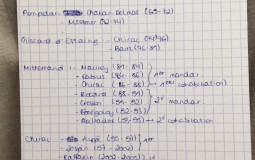 Pompidou : Chaban Delmas (69-72)
- Messmer (72-74)
Giscard d'Estaing - Chirac (74-76)
- Barre (76-81)
Mitterrand : - Mauroy (81-84)
- Fabius (84-86) 1er mandat
- Chirac (86-88) → 1ère cohabitation
- Rocard (88-91)
- Cresson (91-92) 2e mandat
- Bérégovoy (92-93)
- Balladur (93-95) → 2e cohabitation
Chirac : - Juppé (95-97) 1er
- Jospin (97-2002)
- Raffarin (2002-2005)